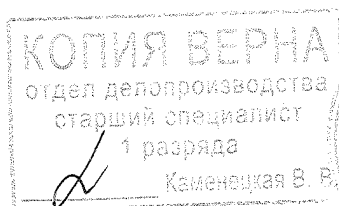 КОПИЯ ВЕРНА
отдел делопроизводства
старший специалист
1 разряда
Каменецкая В. В.